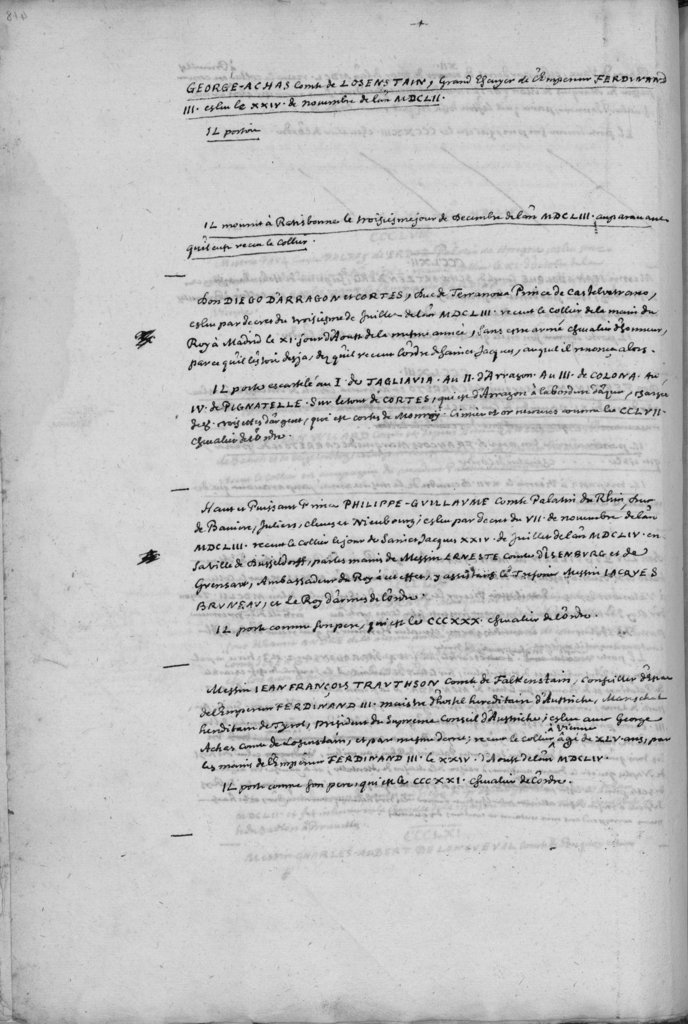 GEORGE-ACHAS Comte de LOSENSTAIN, Grand Escuyer de l'Empereur FERDINAND
III. esleu le XXIV. de novembre de l'an MDCLII.
IL portoit
IL mourut à Ratisbonne le troisiesme jour de Decembre de l'an MDCLIII. auparavant
qu'il eust receu le Collier.
Don DIEGO D'ARRAGON et CORTES, Duc de Terranova Prince de Castelvetrano,
esleu par decret du troisiesme de Juillet de l'an MDCLIII. receut le collier de la main du
Roy à Madrid le XI. jour d'Aoust de la mesme année, sans estre armé chevalier d'honneur,
parce qu'il l'estoit desja, dez qu'il receut l'ordre de Sainct Jacques, auquel il renonça alors.
IL porte escartelé au I. de TAGLIAVIA. Au II. d'Arragon. Au III. de COLONA. Au
IV. de PIGNATELLE. Sur le tout de CORTES; qui est d'Arragon à la bordure d'azur, chargée
de 8. croisettes d'argent, qui est Cortes de Monroy. Cimier et ornemens comme le CCLVII.
Chevalier de l'ordre.
Haut et Puissant Prince PHILIPPE-GVILLAVME Comte Palatin du Rhin, Duc
de Baviere, Juliers, Cleves et Nieubourg; esleu par decret du VII. de novembre de l'an
MDCLIII. receut le Collier le jour de Sainct Jacques XXIV. de Juillet de l'an MDCLIV. en
sa ville de Dusseldorff, par les mains de Messire ERNESTE Comte D'ISENBURG et de
Grensaw, Ambassadeur du Roy à cet effet, y assistants le Tresorier Messire IACQVES
BRVNEAV, et le Roy d'armes de l'ordre.
IL porte comme son pere, qui est le CCCXXX. chevalier de l'ordre.
Messire IEAN FRANÇOIS TRAVTHSON Comte de Falkenstain, Conseiller d'Estat
de l'Empereur FERDINAND III. maistre d'hostel hereditaire d'Austriche, Mareschal
hereditaire de Tyrol, President du Supreme Conseil d'Austriche; esleu avec George
Achas Comte de Losenstain, et par mesme decret; receut le collier à Vienne âgé de XLV. ans, par
les mains de l'Empereur FERDINAND III. le XXIV. d'Aoust de l'an MDCLIV.
IL porte comme son pere, qui est le CCCXXI. chevalier de l'ordre.